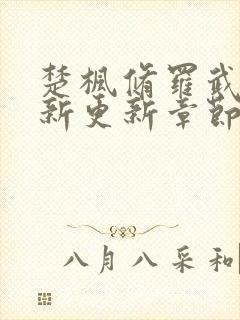 楚枫脩羅武
新更新章節
八月八采和